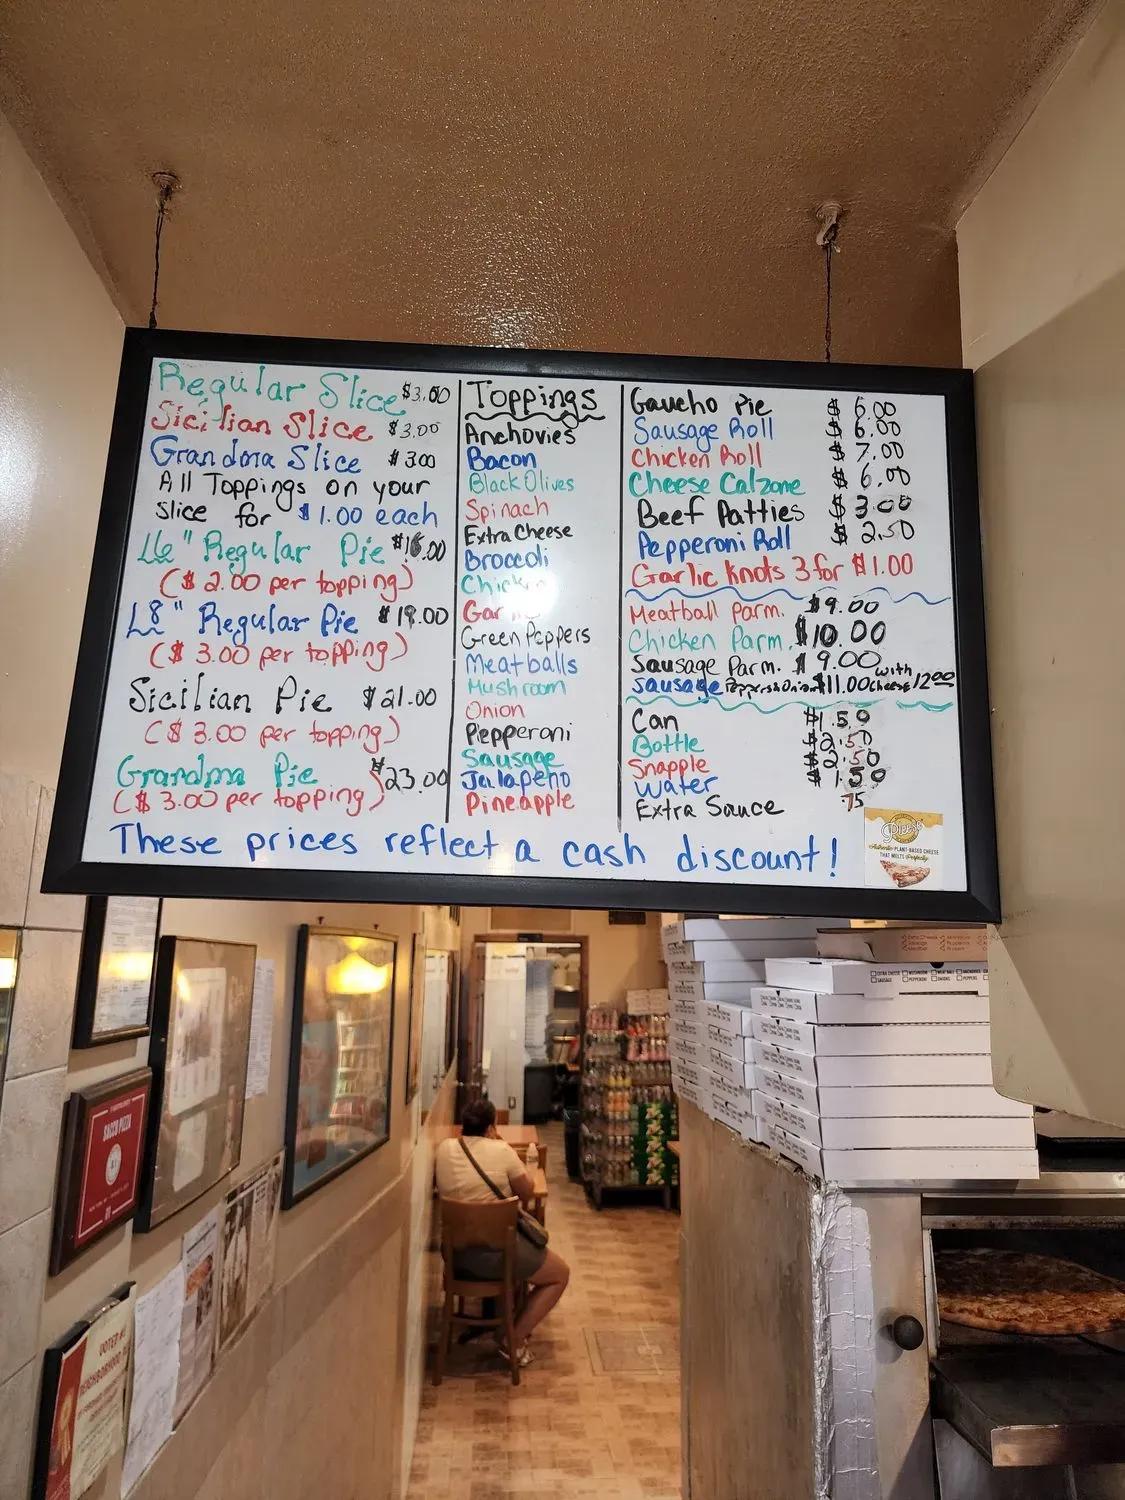 Regular Slice $3.00
Sicilian Slice $3.00
Grandma Slice $3.00
All Toppings on your
slice for $1.00 each
16" Regular Pie $16.00
($2.00 per topping)
18" Regular Pie $19.00
($3.00 per topping)
Sicilian Pie $21.00
($3.00 per topping)
Grandma Pie $23.00
($3.00 per topping)
Toppings
Anchovies
Bacon
Black Olives
Spinach
Extra Cheese
Brocodi
Chicken
Garlic
Green Peppers
Meatballs
Mushroom
Onion
Piepperoni
Sausage
Jalapeño
Pineapple
Gaucho Pie $6.00
Sausage Roll $6.00
Chicken Roll $7.00
Cheese Calzone $6.00
Beef Patties $3.00
Pepperoni Roll $2.50
Garlic Knots 3 for $1.00
Meatball Parm. $9.00
Chicken Parm. $10.00
Sausage Parm. $9.00
Sausage Peppers Onion $11.00 with cheese 12.00
Can $1.50
Bottle $2.50
Snapple $2.50
Water $1.50
Extra Sauce .75
These prices reflect a cash discount!
Pleese
Authentic PLANT-BASED CHEESE
THAT MELTS Perfectly
SACCO PIZZA
VOTED #1
NEIGHBORHOOD